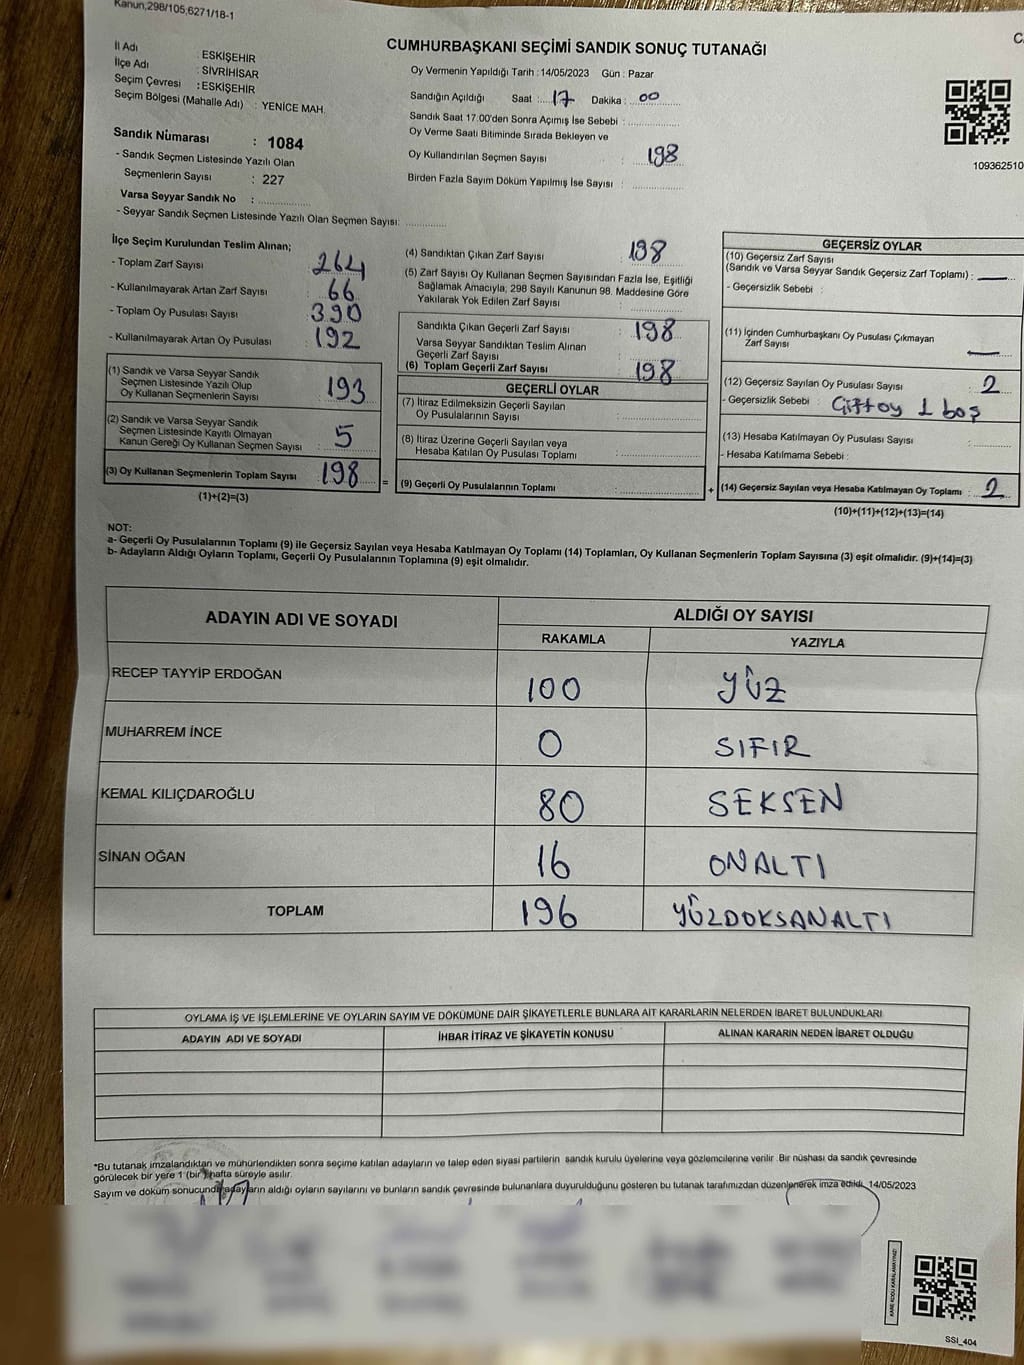 Kanun,298/105,6271/18-1
CUMHURBAŞKANI SEÇİMİ SANDIK SONUÇ TUTANAĞI
İl Adı : ESKİŞEHİR
İlçe Adı : SİVRİHİSAR
Seçim Çevresi : ESKİŞEHİR
Seçim Bölgesi (Mahalle Adı) : YENİCE MAH.
Sandık Numarası : 1084
- Sandık Seçmen Listesinde Yazılı Olan
Seçmenlerin Sayısı : 227
Varsa Seyyar Sandık No :
- Seyyar Sandık Seçmen Listesinde Yazılı Olan Seçmen Sayısı:
Oy Vermenin Yapıldığı Tarih : 14/05/2023 Gün : Pazar
Sandığın Açıldığı Saat : 17 Dakika : 00
Sandık Saat 17.00'den Sonra Açımış İse Sebebi :
Oy Verme Saati Bitiminde Sırada Bekleyen ve
Oy Kullandırılan Seçmen Sayısı : 198
Birden Fazla Sayım Döküm Yapılmış İse Sayısı :
109362510
İlçe Seçim Kurulundan Teslim Alınan;
- Toplam Zarf Sayısı : 264
- Kullanılmayarak Artan Zarf Sayısı : 66
- Toplam Oy Pusulası Sayısı : 390
- Kullanılmayarak Artan Oy Pusulası : 192
(1) Sandık ve Varsa Seyyar Sandık
Seçmen Listesinde Yazılı Olup
Oy Kullanan Seçmenlerin Sayısı : 193
(2) Sandık ve Varsa Seyyar Sandık
Seçmen Listesinde Kayıtlı Olmayan
Kanun Gereği Oy Kullanan Seçmen Sayısı : 5
(3) Oy Kullanan Seçmenlerin Toplam Sayısı : 198
(1)+(2)=(3)
(4) Sandıktan Çıkan Zarf Sayısı : 198
(5) Zarf Sayısı Oy Kullanan Seçmen Sayısından Fazla İse, Eşitliği
Sağlamak Amacıyla, 298 Sayılı Kanunun 98. Maddesine Göre
Yakılarak Yok Edilen Zarf Sayısı :
Sandıkta Çıkan Geçerli Zarf Sayısı : 198
Varsa Seyyar Sandıktan Teslim Alınan
Geçerli Zarf Sayısı :
(6) Toplam Geçerli Zarf Sayısı : 198
GEÇERLİ OYLAR
(7) İtiraz Edilmeksizin Geçerli Sayılan
Oy Pusulalarının Sayısı :
(8) İtiraz Üzerine Geçerli Sayılan veya
Hesaba Katılan Oy Pusulası Toplamı :
= (9) Geçerli Oy Pusulalarının Toplamı :
GEÇERSİZ OYLAR
(10) Geçersiz Zarf Sayısı
(Sandık ve Varsa Seyyar Sandık Geçersiz Zarf Toplamı) : —
- Geçersizlik Sebebi :
(11) İçinden Cumhurbaşkanı Oy Pusulası Çıkmayan
Zarf Sayısı —
(12) Geçersiz Sayılan Oy Pusulası Sayısı : 2
- Geçersizlik Sebebi : Çift oy 1 boş
(13) Hesaba Katılmayan Oy Pusulası Sayısı :
- Hesaba Katılmama Sebebi :
+ (14) Geçersiz Sayılan veya Hesaba Katılmayan Oy Toplamı : 2
(10)+(11)+(12)+(13)=(14)
NOT:
a- Geçerli Oy Pusulalarının Toplamı (9) ile Geçersiz Sayılan veya Hesaba Katılmayan Oy Toplamı (14) Toplamları, Oy Kullanan Seçmenlerin Toplam Sayısına (3) eşit olmalıdır. (9)+(14)=(3)
b- Adayların Aldığı Oyların Toplamı, Geçerli Oy Pusulalarının Toplamına (9) eşit olmalıdır.
ADAYIN ADI VE SOYADI ALDIĞI OY SAYISI
RAKAMLA YAZIYLA
RECEP TAYYİP ERDOĞAN 100 YÜZ
MUHARREM İNCE 0 SIFIR
KEMAL KILIÇDAROĞLU 80 SEKSEN
SİNAN OĞAN 16 ONALTI
TOPLAM 196 YÜZDOKSANALTI
OYLAMA İŞ VE İŞLEMLERİNE VE OYLARIN SAYIM VE DÖKÜMÜNE DAİR ŞİKAYETLERLE BUNLARA AİT KARARLARIN NELERDEN İBARET BULUNDUKLARI
ADAYIN ADI VE SOYADI İHBAR İTİRAZ VE ŞİKAYETİN KONUSU ALINAN KARARIN NEDEN İBARET OLDUĞU
*Bu tutanak imzalandıktan ve mühürlendikten sonra seçime katılan adayların ve talep eden siyasi partilerin sandık kurulu üyelerine veya gözlemcilerine verilir .Bir nüshası da sandık çevresinde
görülecek bir yere 1 (bir) hafta süreyle asılır.
Sayım ve döküm sonucunda adayların aldığı oyların sayılarını ve bunların sandık çevresinde bulunanlara duyurulduğunu gösteren bu tutanak tarafımızdan düzenlenerek imza edildi. 14/05/2023
KARE KODU KARALAMAYINIZ!
SSI_404